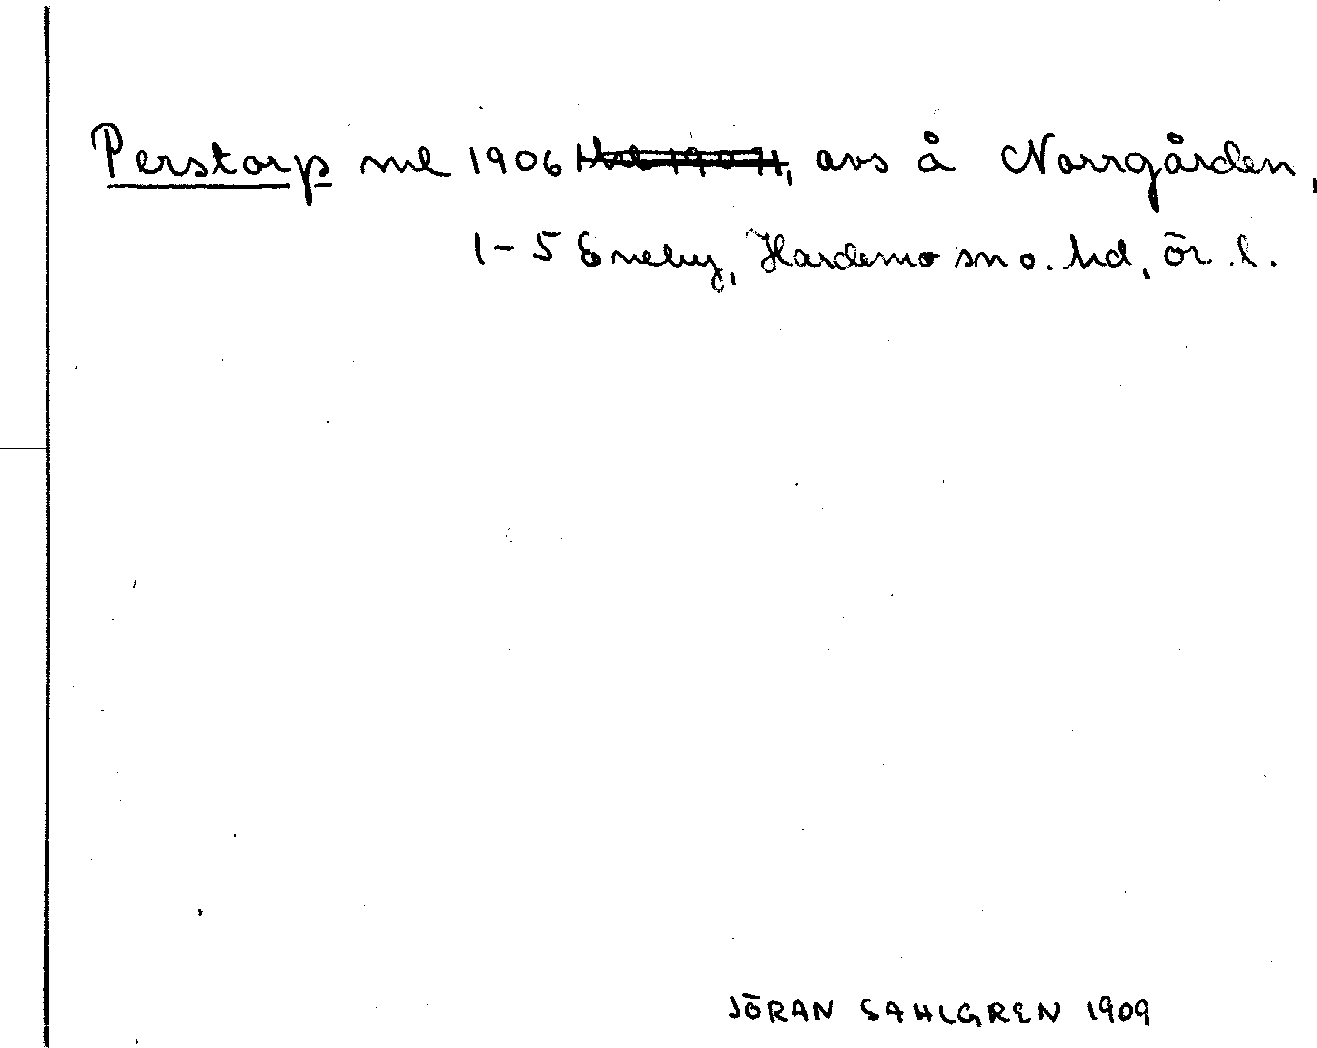 Perstorp ml 1906, avs å Norrgården,
1-5 Eneby, Hardemo sn o. hd, ör. l.
JÖRAN SAHLGREN 1909